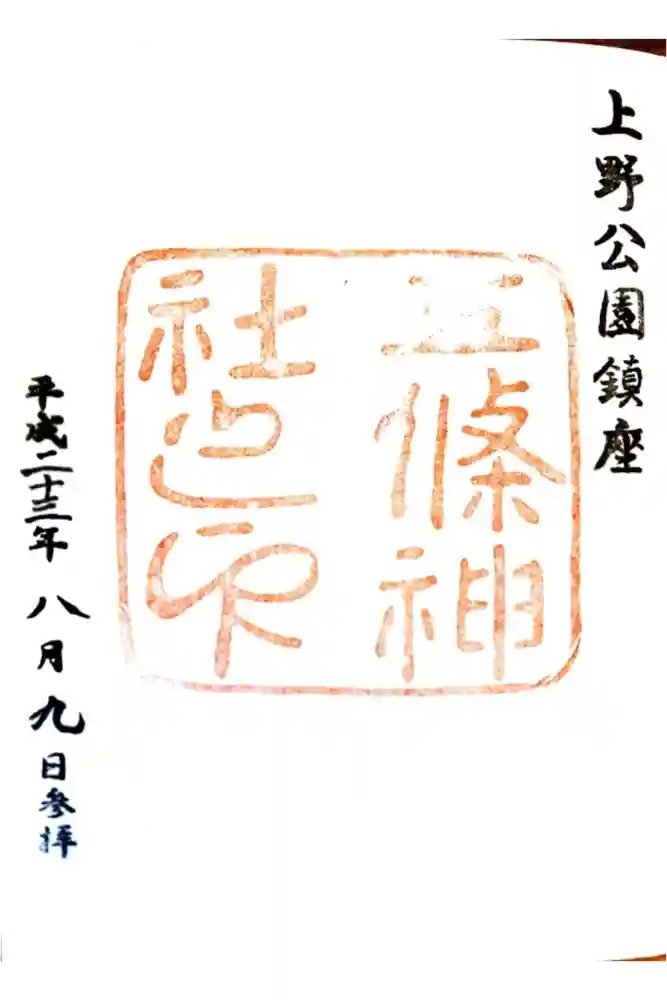 上野公園鎮座
五條神
社之印
平成二十三年 八月九日参拝